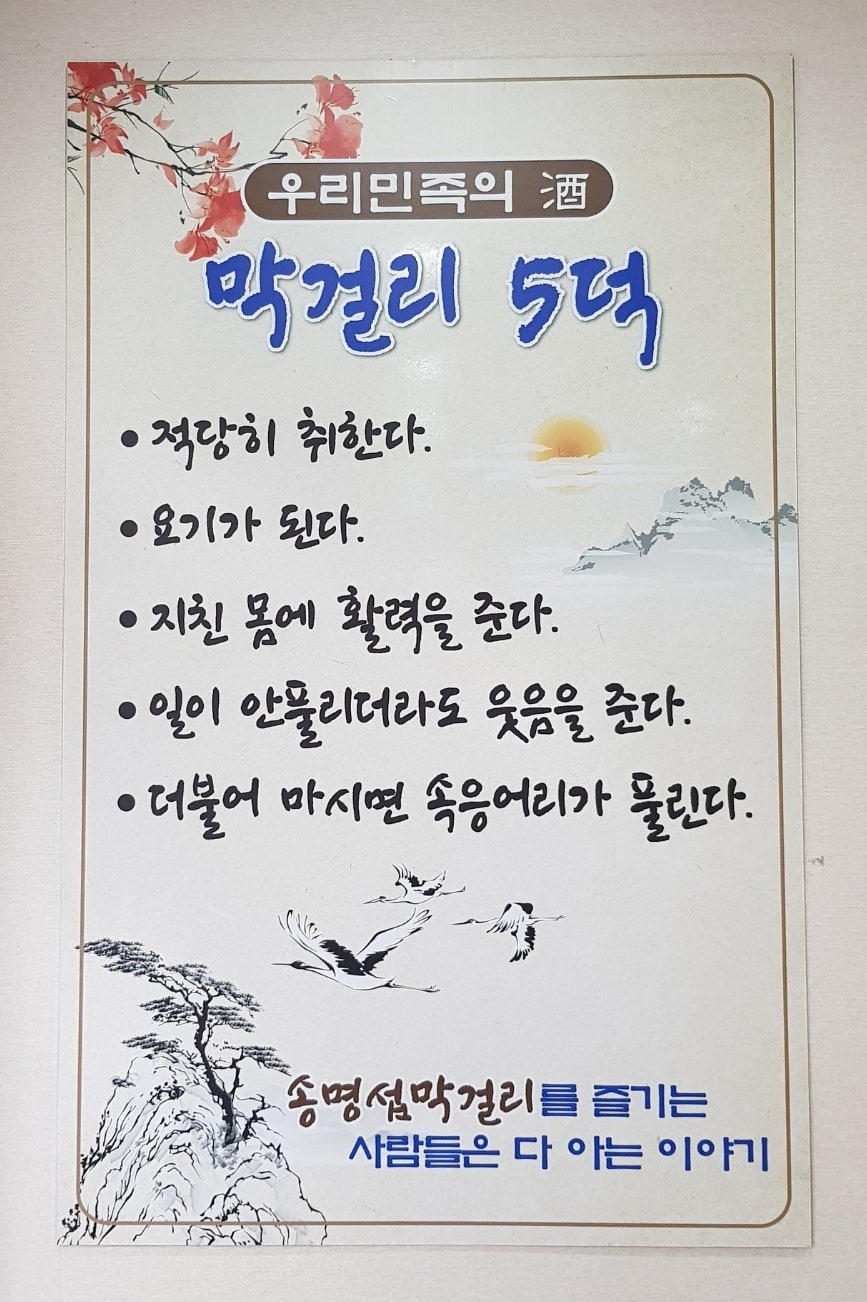 우리민족의 酒
막걸리 5덕
• 적당히 취한다.
• 요기가 된다.
• 지친 몸에 활력을 준다.
• 일이 안풀리더라도 웃음을 준다.
• 더불어 마시면 속응어리가 풀린다.
송명섭막걸리를 즐기는
사람들은 다 아는 이야기